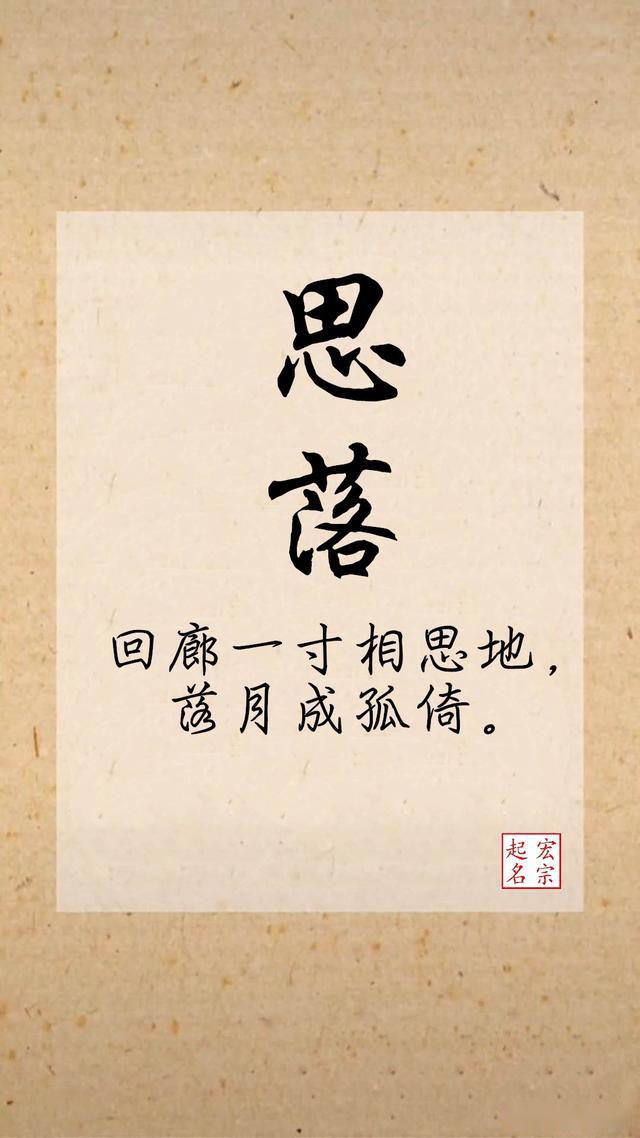 思
落
回廊一寸相思地，
落月成孤倚。
宏宗
起名